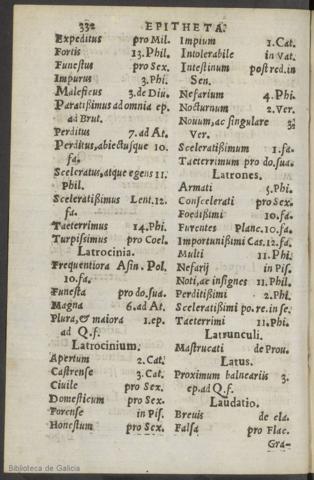 332 EPITHETA.
Expeditus pro Mil.
Fortis 13. Phil.
Funestus pro Sex.
Impurus 3. Phi.
Maleficus 3. de Diu.
Paratißimus ad omnia ep.
ad Brut.
Perditus 7. ad At.
Perditus, abiectusque 10.
fa.
Sceleratus, atque egens 11.
Phil.
Sceleratißimus Lent. 12.
fa.
Taeterrimus 14. Phi.
Turpissimus pro Coel.
Latrocinia.
Frequentiora Asin. Pol.
10. fa.
Funesta pro do. sua.
Magna 6. ad At.
Plura, & maiora 1. ep.
ad Q. f.
Latrocinium.
Apertum 2. Cat.
Castrense 3. Cat.
Ciuile pro Sex.
Domesticum pro Sex.
Forense in Pis.
Honestum pro Sex.
Impium 1. Cat.
Intolerabile in Vat.
Intestinum post red. in
Sen.
Nefarium 4. Phi.
Nocturnum 2. Ver.
Nouum, ac singulare
Ver.
Sceleratißimum 1. fa.
Taeterrimum pro do. sua.
Latrones.
Armati 5. Phi.
Conscelerati pro Sex.
Foedißimi 10. fa.
Furentes Planc. 10. fa.
Importunißimi Cas. 12. fa.
Multi 11. Phi.
Nefarij in Pis.
Noti, ac insignes 11. Phil.
Perditißimi 2. Phi.
Sceleratißimi po. re. in se.
Taeterrimi 11. Phi.
Latrunculi.
Mastrucati de Prou.
Latus.
Proximum balneariis 3.
ep. ad Q. f.
Laudatio.
Breuis de cla.
Falsa pro Flac.
Gra-
Biblioteca de Galicia